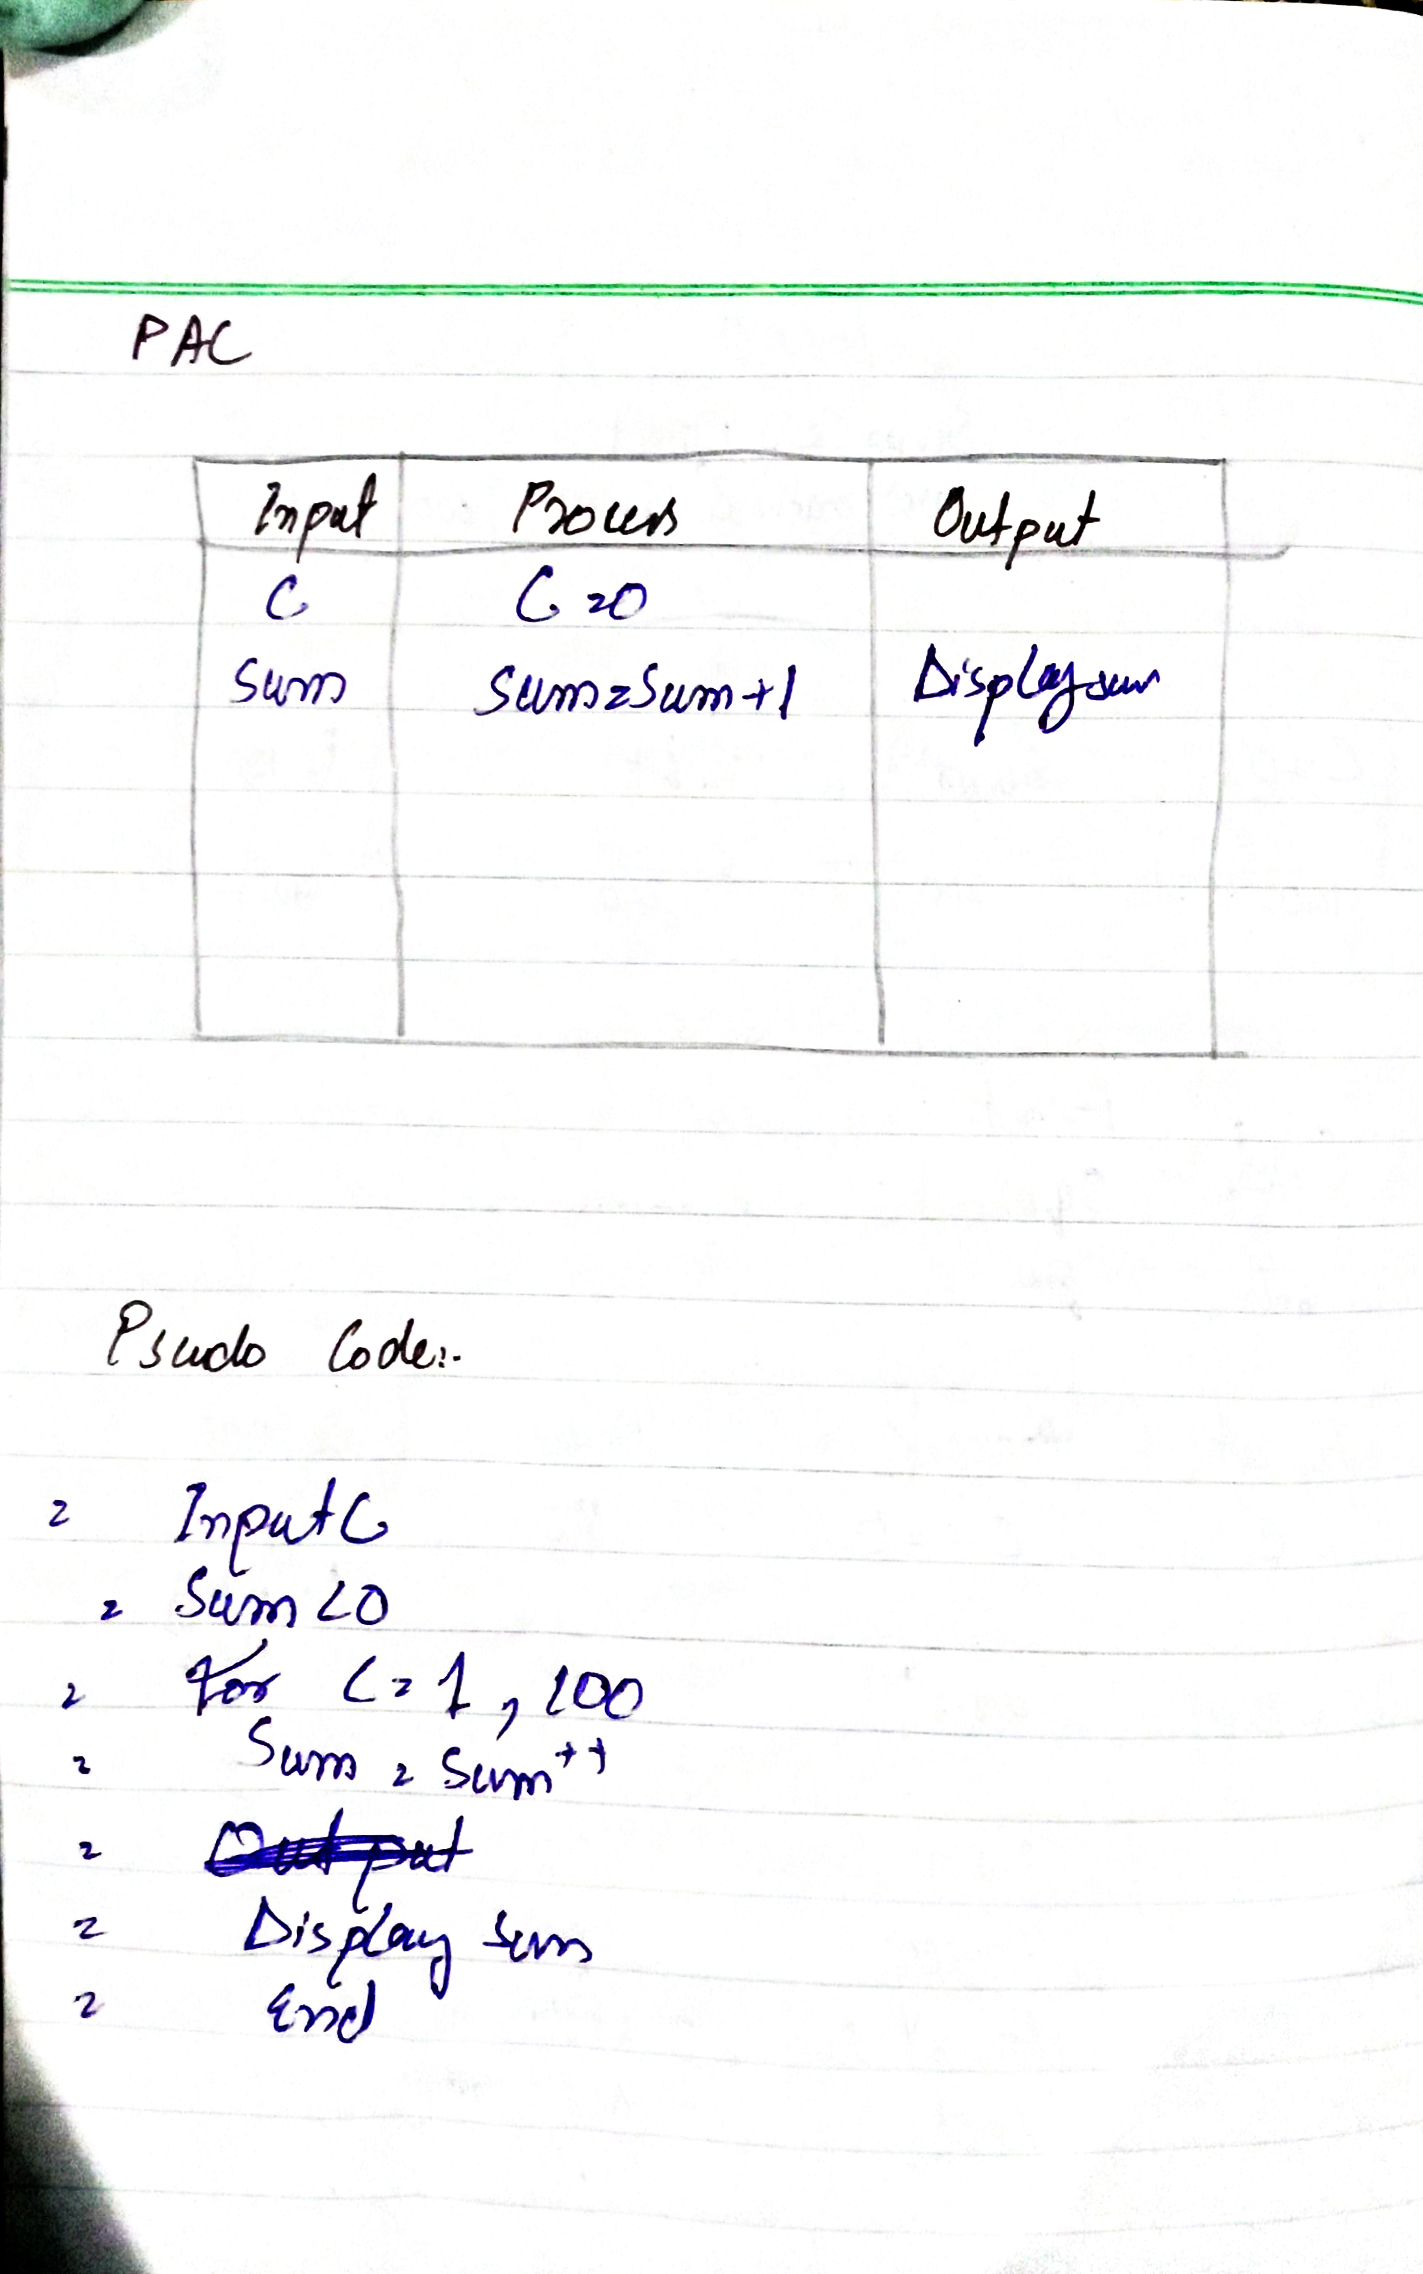 PAC
Input Process Output
C C=0
Sum Sum=Sum+1 Display sum
Psudo Code:-
= Input C
= Sum <0
= For C=1, 100
= Sum = Sum++
= Output
= Display sum
= End